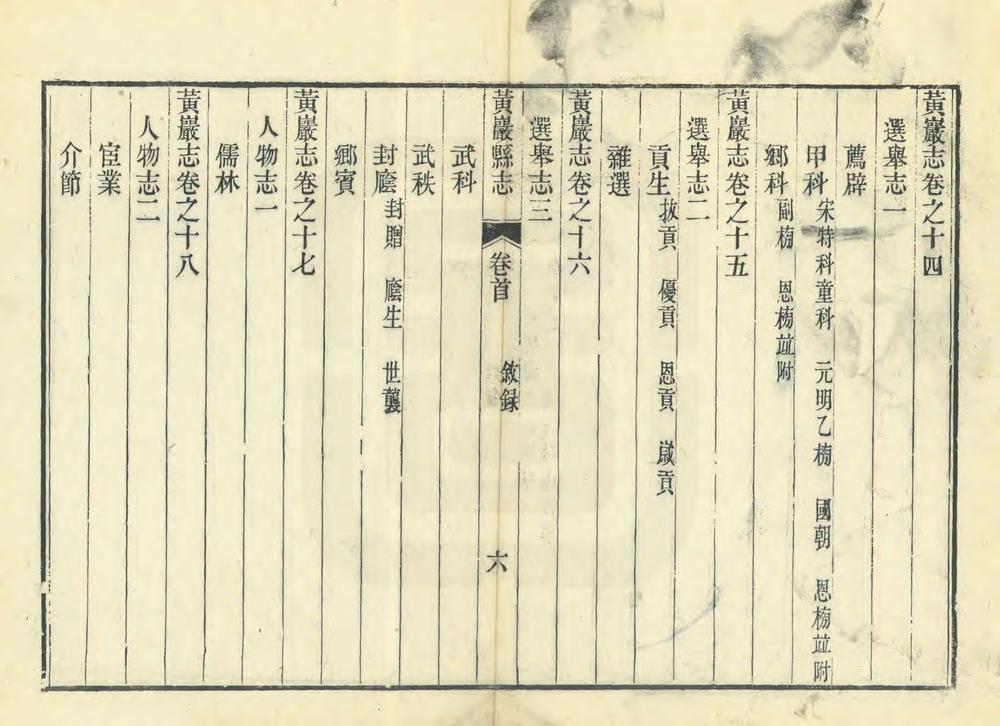 黃巖志卷之十四
選舉志一
薦辟
甲科宋特科童科 元明乙榜 國朝 恩榜並附
鄉科副榜 恩榜並附
黃巖志卷之十五
選舉志二
貢生拔貢 優貢 恩貢 歲貢
雜選
黃巖志卷之十六
選舉志三
黃巖縣志 卷首 敘録 六
武科
武秩
封廕封贈 廕生 世襲
鄉賓
黃巖志卷之十七
人物志一
儒林
黃巖志卷之十八
人物志二
宦業
介節